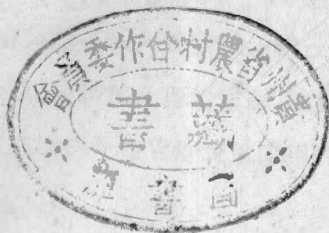 貴州省農村合作委員會
藏書
圖書